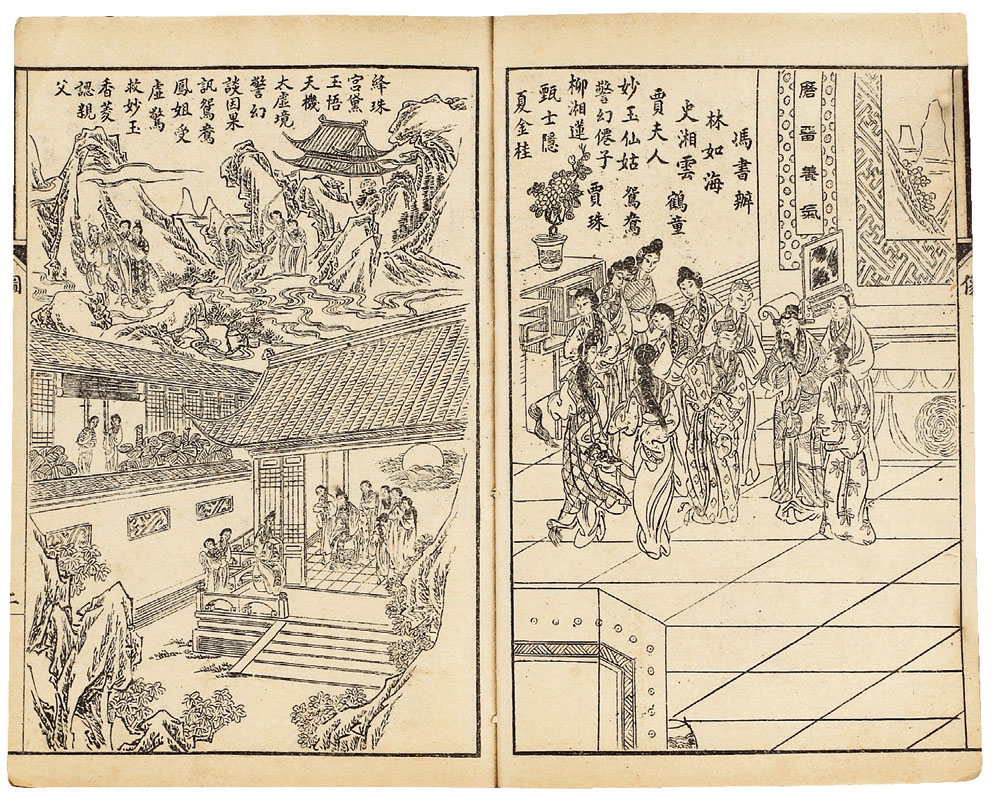 養氣
馮書辦
林如海
史湘雲
鶴童
賈夫人
妙玉仙姑 鴛鴦
警幻僊子 賈珠
柳湘蓮
甄士隱
夏金桂
絳珠
宮黛
玉悟
天機
太虛境
警幻
談因果
訊鴛鴦
鳳姐受
虛驚
救妙玉
香菱
認親
父